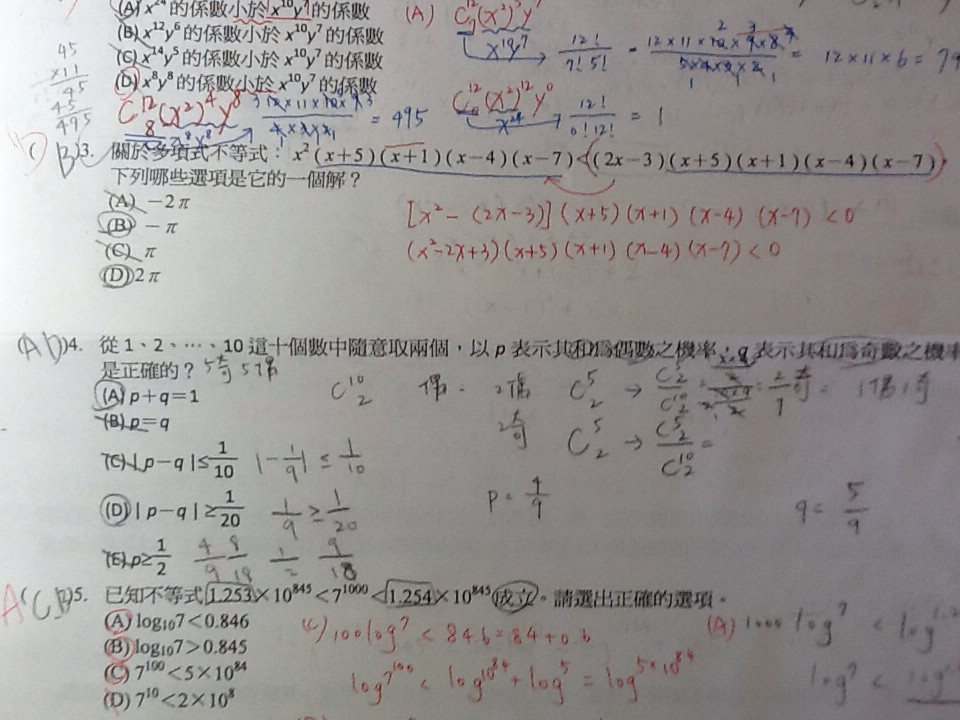 (A) x²⁴ 的係數小於 x¹⁰y⁷ 的係數
(B) x¹²y⁶ 的係數小於 x¹⁰y⁷ 的係數
(C) x¹⁴y⁵ 的係數小於 x¹⁰y⁷ 的係數
(D) x⁸y⁸ 的係數小於 x¹⁰y⁷ 的係數
(A)
x¹⁰y⁷
12!
7!5!
= 12×11×6=79
45
×11
45
45
495
= 495
x²⁴
12!
0!12!
= 1
B
3. 關於多項式不等式:x²(x+5)(x+1)(x-4)(x-7)<(2x-3)(x+5)(x+1)(x-4)(x-7),
下列哪些選項是它的一個解?
(A) -2π
(B) -π
(C) π
(D) 2π
[x²-(2x-3)](x+5)(x+1)(x-4)(x-7)<0
(x²-2x+3)(x+5)(x+1)(x-4)(x-7)<0
(AD)4. 從 1、2、…、10 這十個數中隨意取兩個,以 p 表示其和為偶數之機率,q 表示其和為奇數之機率
是正確的? 5奇5偶
(A) p+q=1
(B) p=q
(C) |p-q|≤1/10 |-1/9|≤1/10
(D) |p-q|≥1/20 1/9≥1/20
(E) p≥1/2 4/9 8/18 1/2 9/18
C¹⁰₂ 偶: 2偶 C⁵₂ → C⁵₂/C¹⁰₂
奇= 1偶1奇
2奇 C⁵₂ → C⁵₂/C¹⁰₂=
p=4/9
q=5/9
A(CB)5. 已知不等式 1.253×10⁸⁴⁵<7¹⁰⁰⁰<1.254×10⁸⁴⁵ 成立。請選出正確的選項。
(A) log₁₀7<0.846
(B) log₁₀7>0.845
(C) 7¹⁰⁰<5×10⁸⁴
(D) 7¹⁰<2×10⁸
(C) 100log7<84.6=84+0.6
log7¹⁰⁰<log10⁸⁴+log5=log5×10⁸⁴
(A) 1000log7<log1.2
log7<